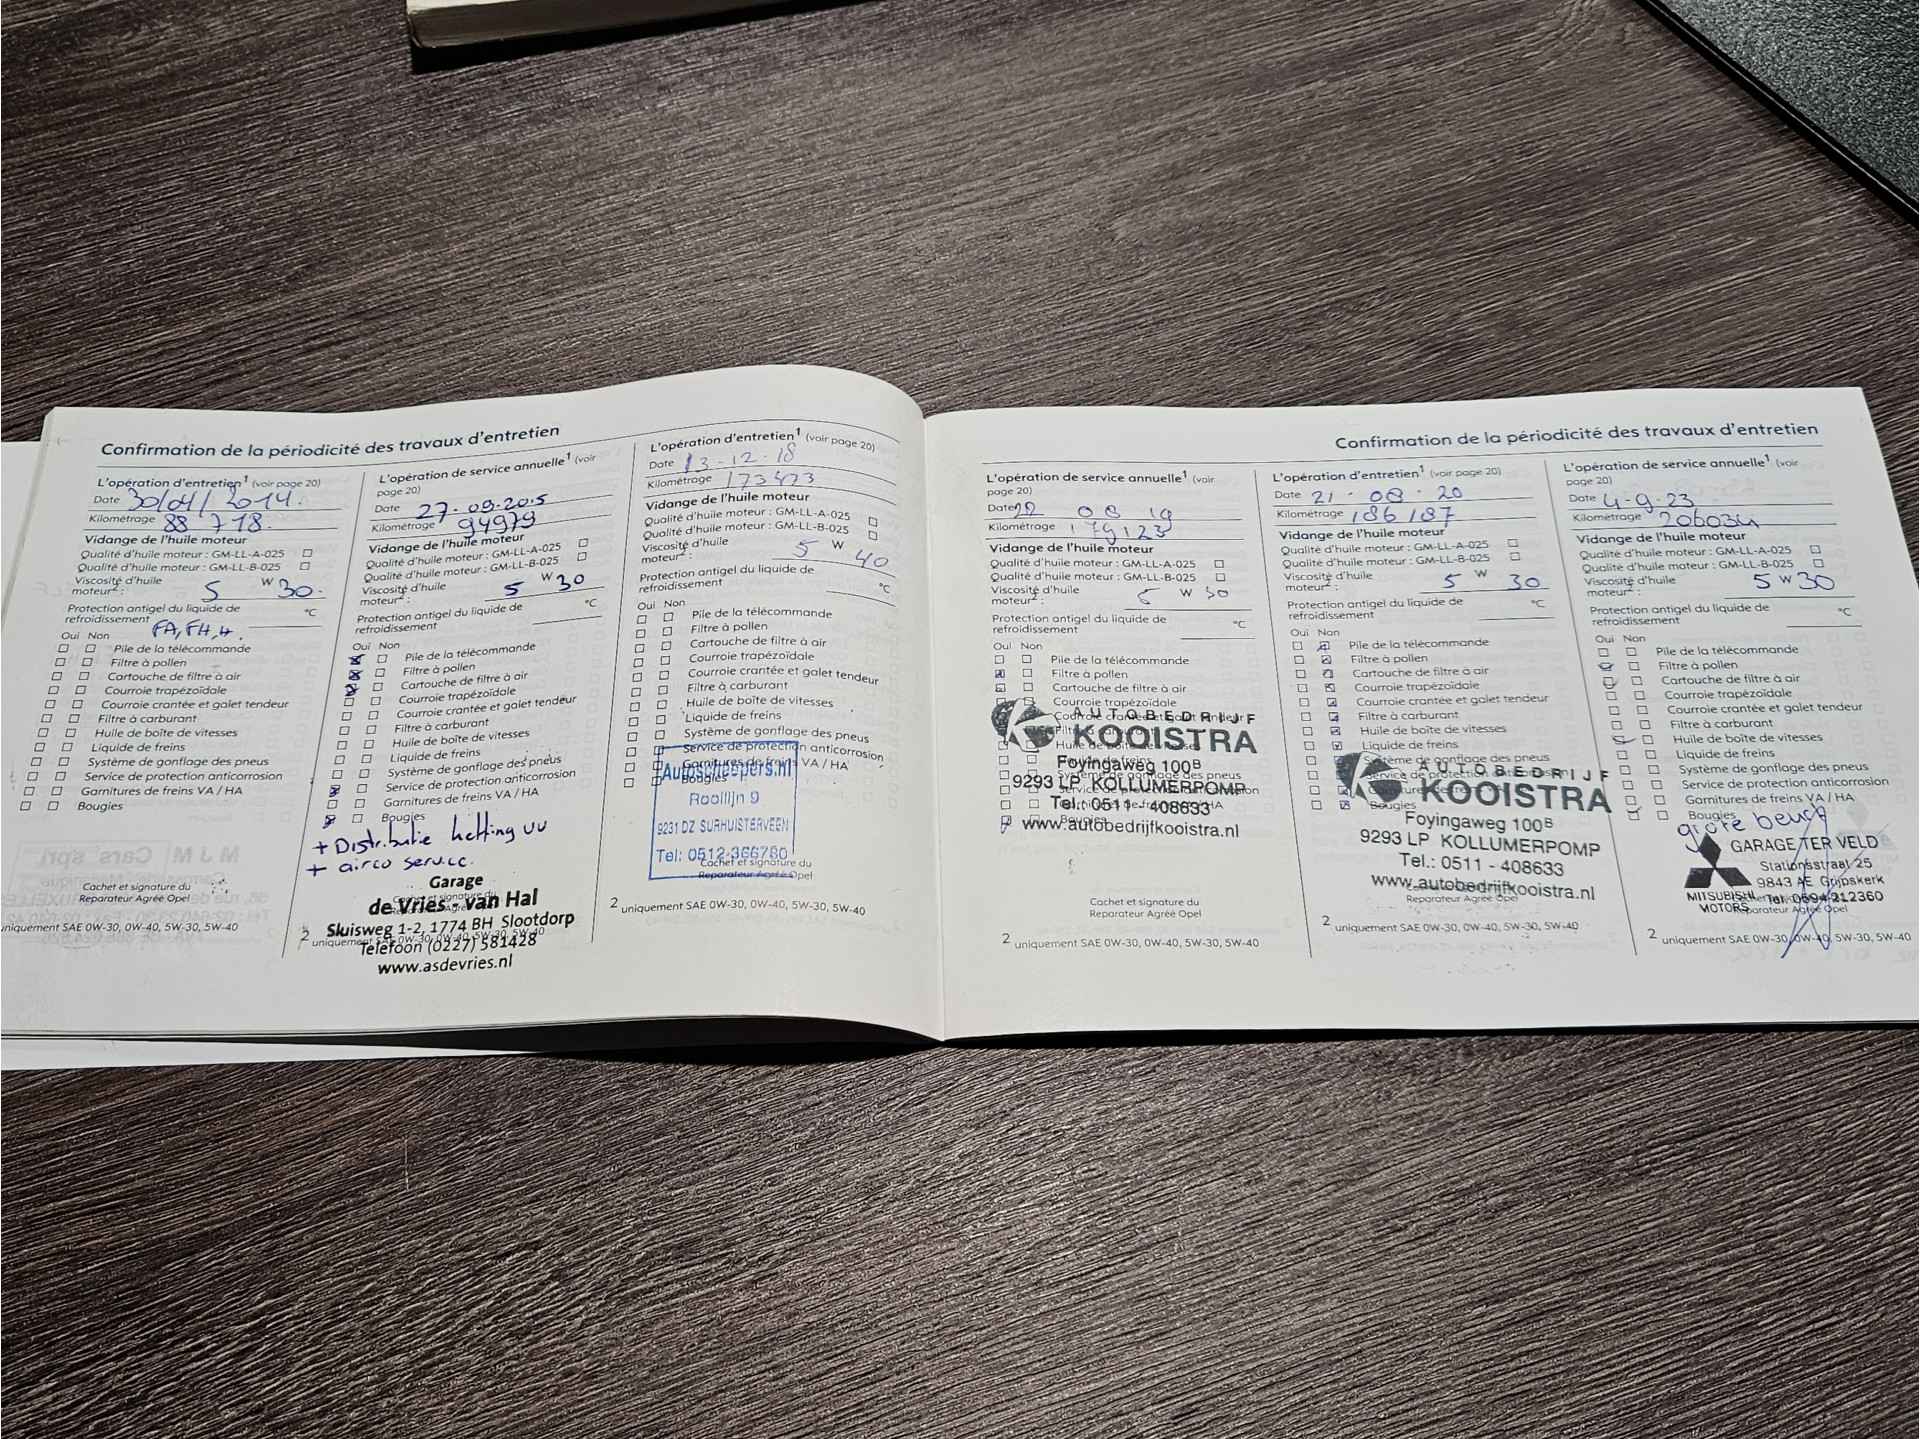 Confirmation de la périodicité des travaux d'entretien
L'opération d'entretien¹ (voir page 20)
Date 30/04/2014.
Kilométrage 88 718.
Vidange de l'huile moteur
Qualité d'huile moteur : GM-LL-A-025
Qualité d'huile moteur : GM-LL-B-025
Viscosité d'huile
moteur² : 5 W 30.
Protection antigel du liquide de
refroidissement °C
FA, FH, H.
Oui Non
Pile de la télécommande
Filtre à pollen
Cartouche de filtre à air
Courroie trapézoïdale
Courroie crantée et galet tendeur
Filtre à carburant
Huile de boîte de vitesses
Liquide de freins
Système de gonflage des pneus
Service de protection anticorrosion
Garnitures de freins VA / HA
Bougies
Cachet et signature du
Reparateur Agréé Opel
uniquement SAE 0W-30, 0W-40, 5W-30, 5W-40
L'opération de service annuelle¹ (voir
page 20)
Date 27-09-2015
Kilométrage 94979
Vidange de l'huile moteur
Qualité d'huile moteur : GM-LL-A-025
Qualité d'huile moteur : GM-LL-B-025
Viscosité d'huile
moteur² : 5 W 30
Protection antigel du liquide de
refroidissement °C
Oui Non
Pile de la télécommande
Filtre à pollen
Cartouche de filtre à air
Courroie trapézoïdale
Courroie crantée et galet tendeur
Filtre à carburant
Huile de boîte de vitesses
Liquide de freins
Système de gonflage des pneus
Service de protection anticorrosion
Garnitures de freins VA / HA
Bougies
+ Distributie ketting vv
+ airco service.
Garage
de Vries - van Hal
Sluisweg 1-2, 1774 BH Slootdorp
Telefoon (0227) 581428
www.asdevries.nl
2 uniquement SAE 0W-30, 0W-40, 5W-30, 5W-40
L'opération d'entretien¹ (voir page 20)
Date 13-12-18
Kilométrage 173473
Vidange de l'huile moteur
Qualité d'huile moteur : GM-LL-A-025
Qualité d'huile moteur : GM-LL-B-025
Viscosité d'huile
moteur² : 5 W 40
Protection antigel du liquide de
refroidissement °C
Oui Non
Pile de la télécommande
Filtre à pollen
Cartouche de filtre à air
Courroie trapézoïdale
Courroie crantée et galet tendeur
Filtre à carburant
Huile de boîte de vitesses
Liquide de freins
Système de gonflage des pneus
Service de protection anticorrosion
Garnitures de freins VA / HA
Bougies
Autoscheepers.nl
9231 DZ SURHUISTERVEEN
Tel: 0512-366780
Cachet et signature du
Reparateur Agréé Opel
2 uniquement SAE 0W-30, 0W-40, 5W-30, 5W-40
Confirmation de la périodicité des travaux d'entretien
L'opération de service annuelle¹ (voir
page 20)
Date 22 08 19
Kilométrage 179123
Vidange de l'huile moteur
Qualité d'huile moteur : GM-LL-A-025
Qualité d'huile moteur : GM-LL-B-025
Viscosité d'huile
moteur² : 5 W 30
Protection antigel du liquide de
refroidissement °C
Oui Non
Pile de la télécommande
Filtre à pollen
Cartouche de filtre à air
Courroie trapézoïdale
AUTOBEDRIJF
KOOISTRA
Foyingaweg 100B
9293 LP KOLLUMERPOMP
Tel.: 0511 - 408633
www.autobedrijfkooistra.nl
Cachet et signature du
Reparateur Agréé Opel
2 uniquement SAE 0W-30, 0W-40, 5W-30, 5W-40
L'opération d'entretien¹ (voir page 20)
Date 21-08-20
Kilométrage 186187
Vidange de l'huile moteur
Qualité d'huile moteur : GM-LL-A-025
Qualité d'huile moteur : GM-LL-B-025
Viscosité d'huile
moteur² : 5 W 30
Protection antigel du liquide de
refroidissement °C
Oui Non
Pile de la télécommande
Filtre à pollen
Cartouche de filtre à air
Courroie trapézoïdale
Courroie crantée et galet tendeur
Filtre à carburant
Huile de boîte de vitesses
Liquide de freins
Système de gonflage des pneus
Bougies
AUTOBEDRIJF
KOOISTRA
Foyingaweg 100B
9293 LP KOLLUMERPOMP
Tel.: 0511 - 408633
www.autobedrijfkooistra.nl
Reparateur Agréé Opel
2 uniquement SAE 0W-30, 0W-40, 5W-30, 5W-40
L'opération de service annuelle¹ (voir
page 20)
Date 4-9-23
Kilométrage 206034
Vidange de l'huile moteur
Qualité d'huile moteur : GM-LL-A-025
Qualité d'huile moteur : GM-LL-B-025
Viscosité d'huile
moteur² : 5 W 30
Protection antigel du liquide de
refroidissement °C
Oui Non
Pile de la télécommande
Filtre à pollen
Cartouche de filtre à air
Courroie trapézoïdale
Courroie crantée et galet tendeur
Filtre à carburant
Huile de boîte de vitesses
Liquide de freins
Système de gonflage des pneus
Service de protection anticorrosion
Garnitures de freins VA / HA
Bougies
grote beurt
GARAGE TER VELD
Stationsstraat 25
9843 AE Grijpskerk
MITSUBISHI
MOTORS
Tel. 0594-212360
Reparateur Agréé Opel
2 uniquement SAE 0W-30, 0W-40, 5W-30, 5W-40